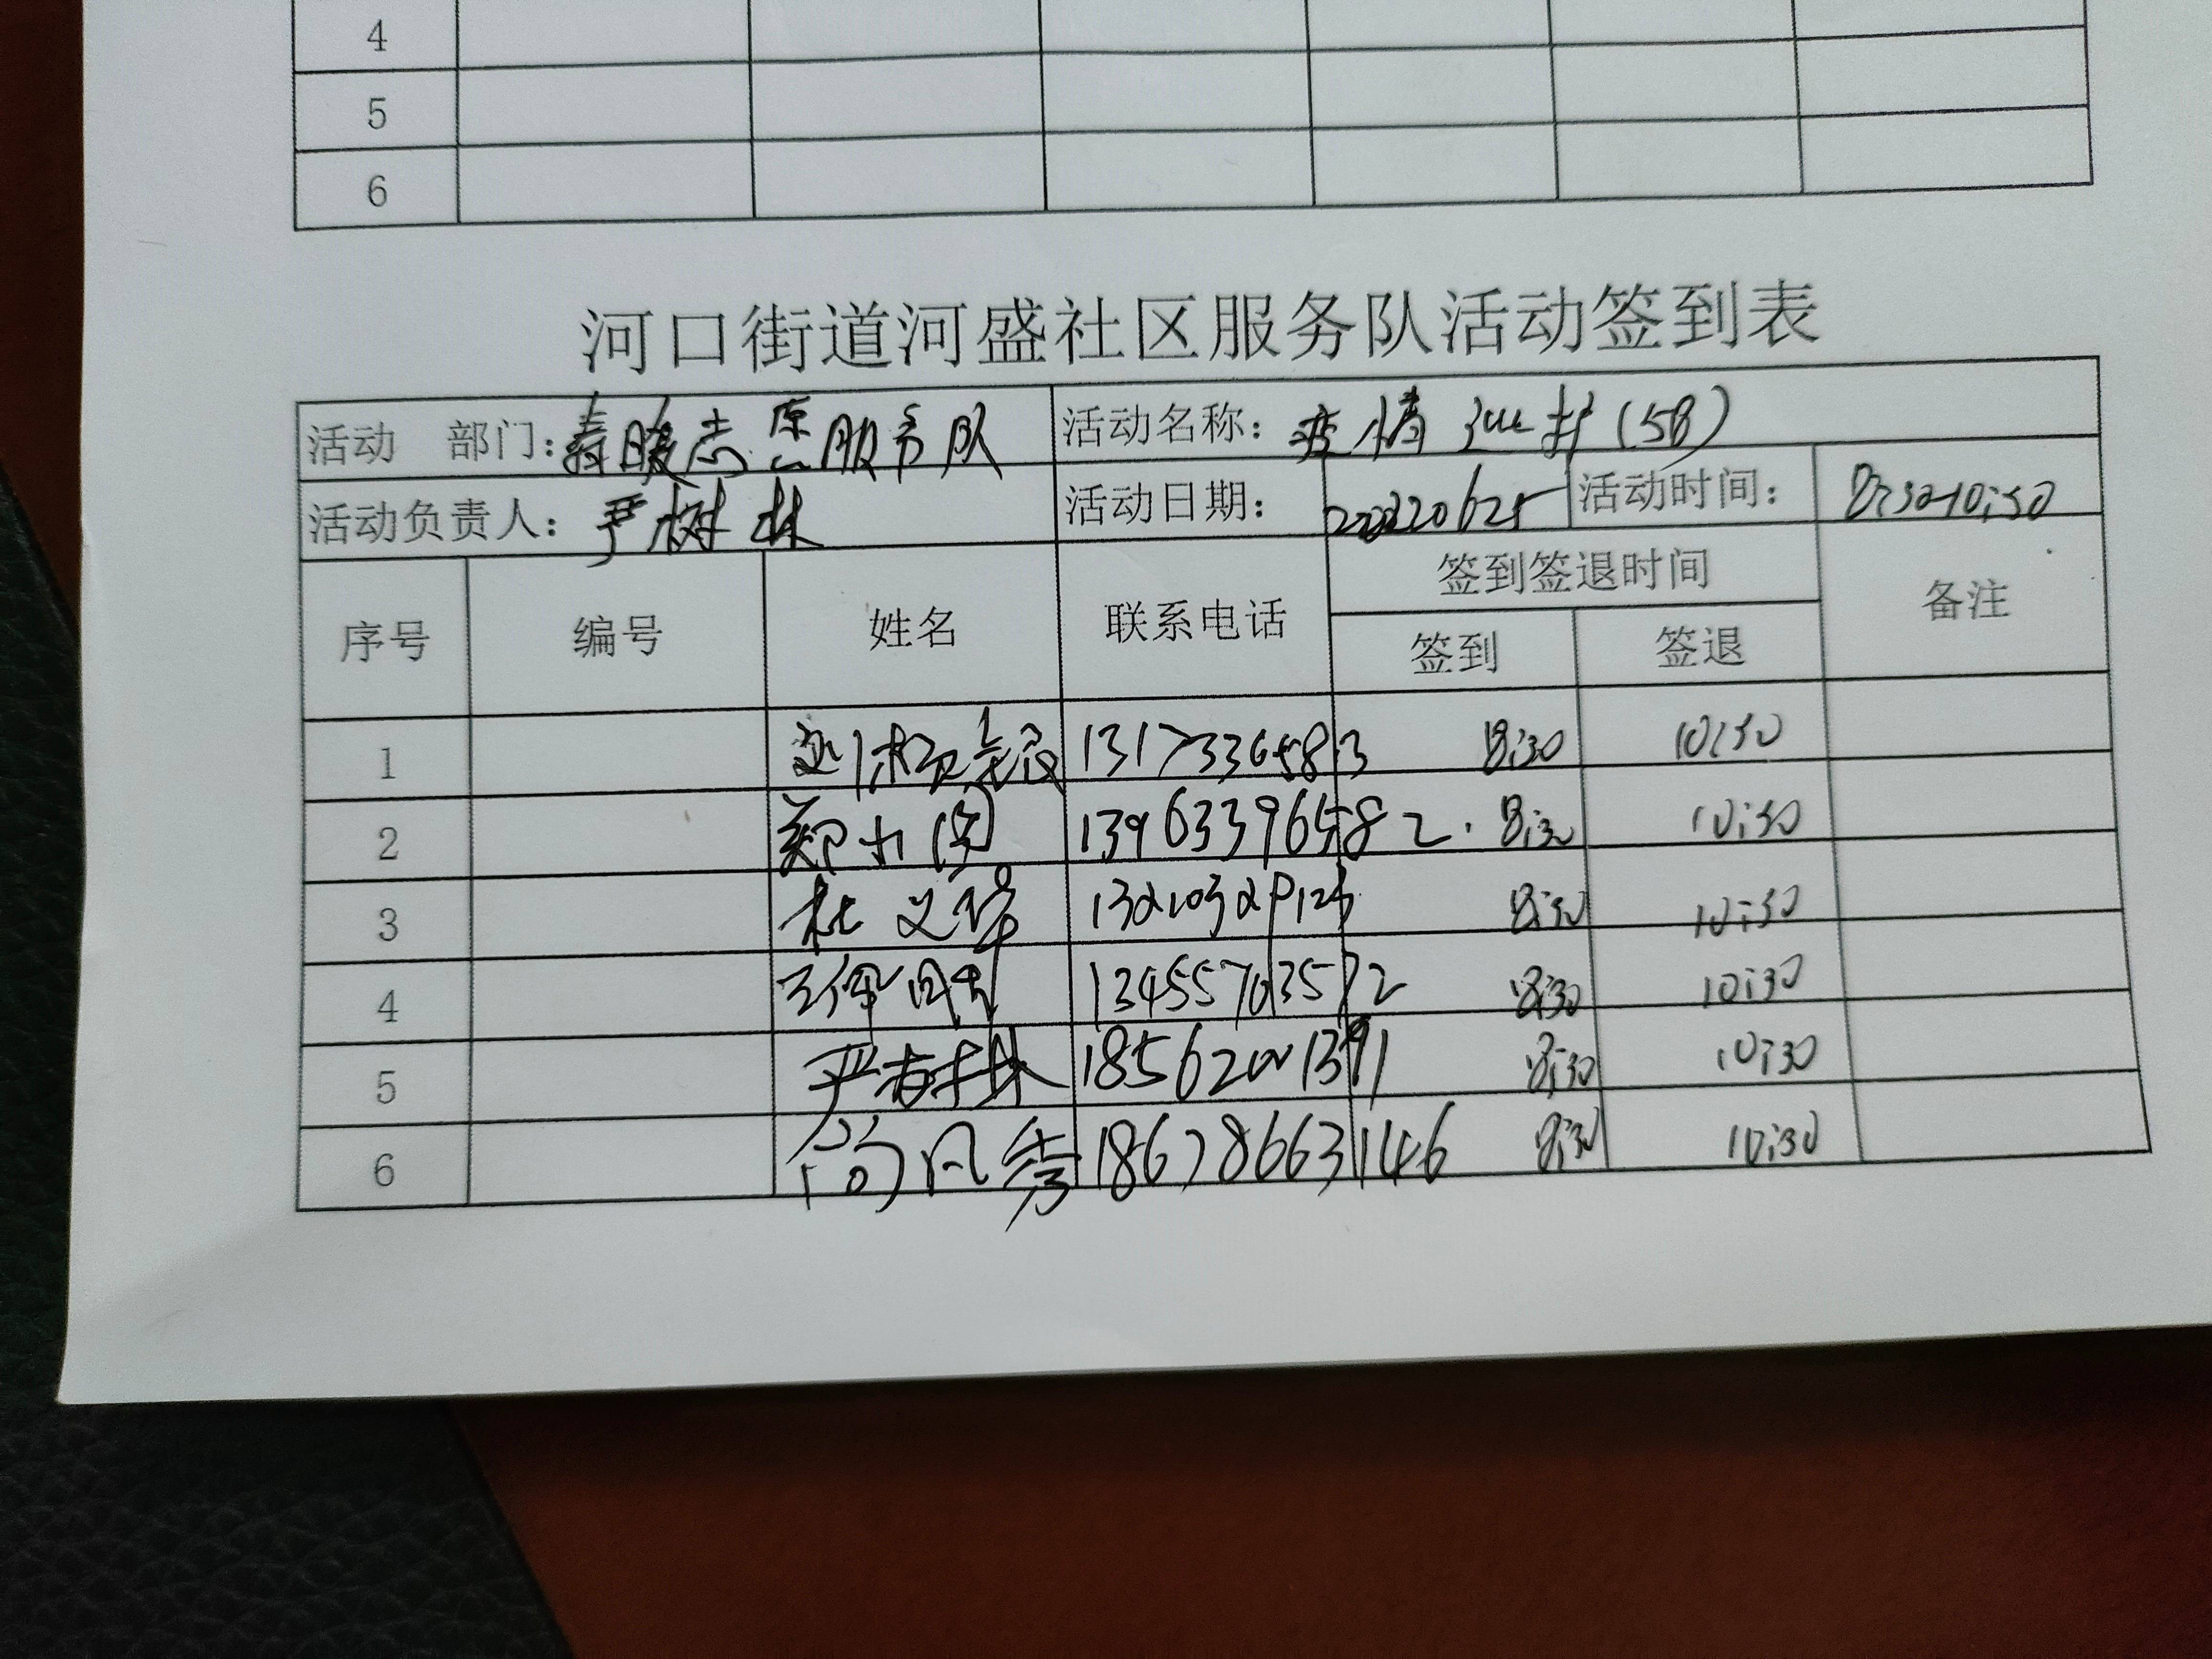 4
5
6
河口街道河盛社区服务队活动签到表
活动 部门：春暖志愿服务队 活动名称：疫情 (5B)
活动负责人：严树林 活动日期：20220625 活动时间：8:30-10:30
序号 编号 姓名 联系电话 签到签退时间 备注
签到 签退
1 刘 13173365813 8:30 10:30
2 郑 13963396582 8:30 10:30
3 杜义 8:30 10:30
4 13455703572 8:30 10:30
5 严树林 18562001391 8:30 10:30
6 简风秀 18678663146 8:30 10:30